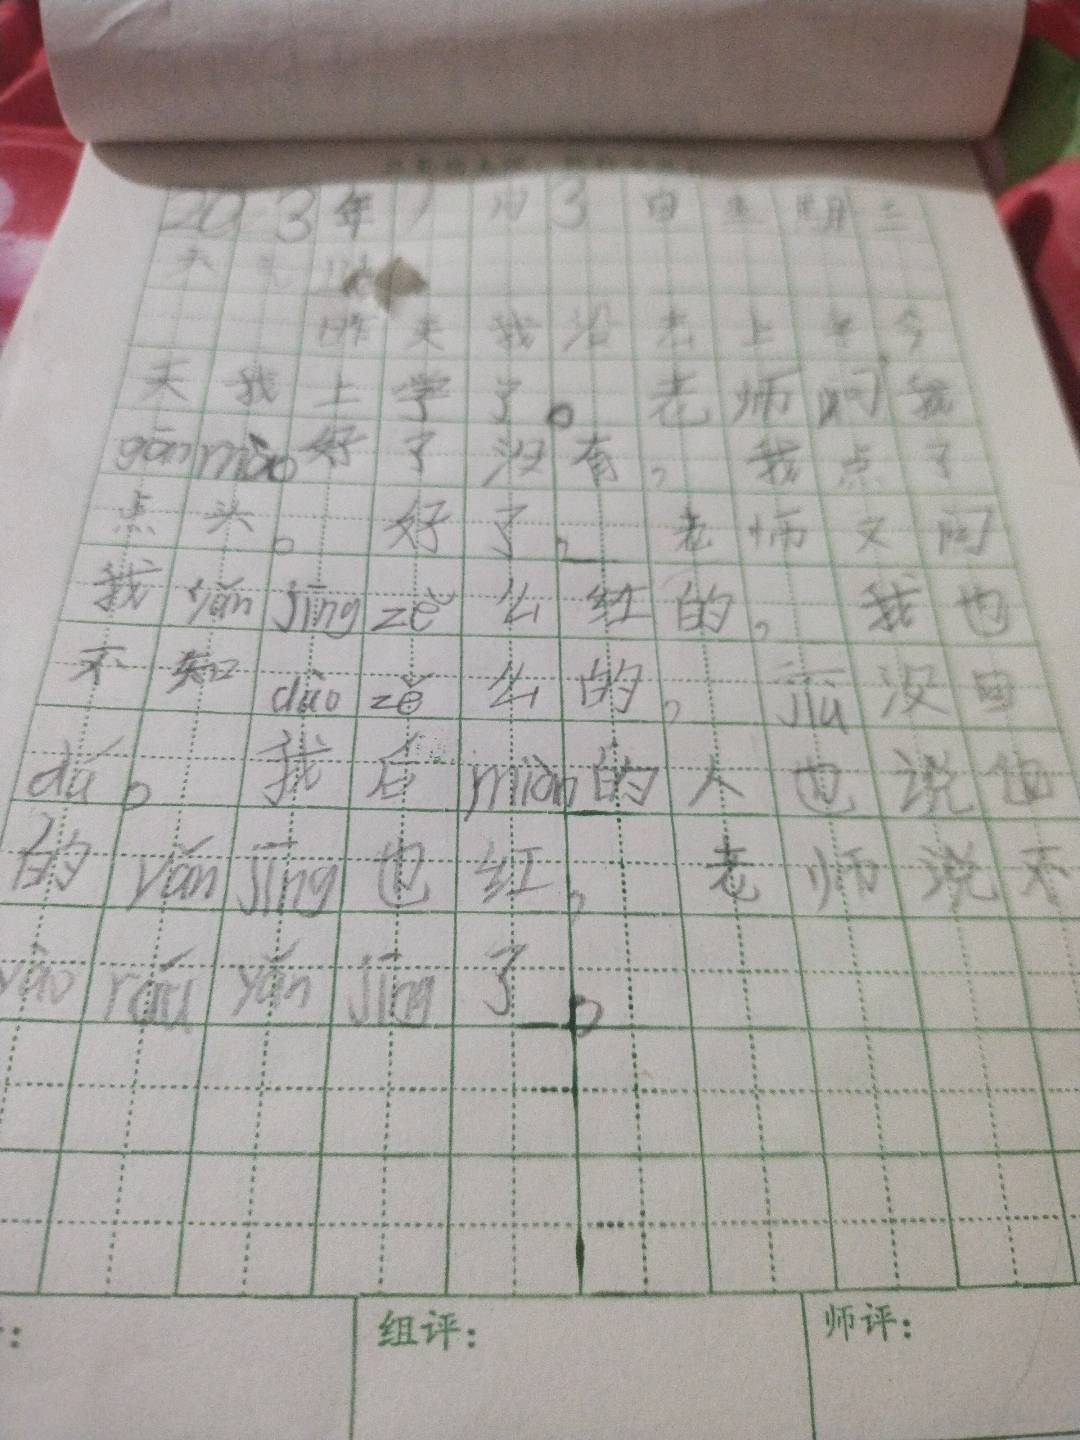 20 3年 月3日星期三
天气
昨天我没去上学今
天我上学了。老师问我
gǎnmào好了没有，我点了
点头。好了，老师又问
我yǎn jīng zě么红的，我也
不知dào zě么的，jiù没回
dá。我后miàn的人也说他
的yǎn jīng也红，老师说不
yào róu yǎn jīng了。
组评：
师评：